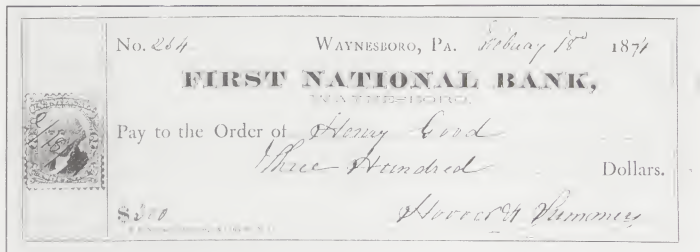 No. 264 WAYNESBORO, PA. Febuary 18th 1874
FIRST NATIONAL BANK,
WAYNESBORO.
Pay to the Order of Henry Good
Three Hundred Dollars.
$300